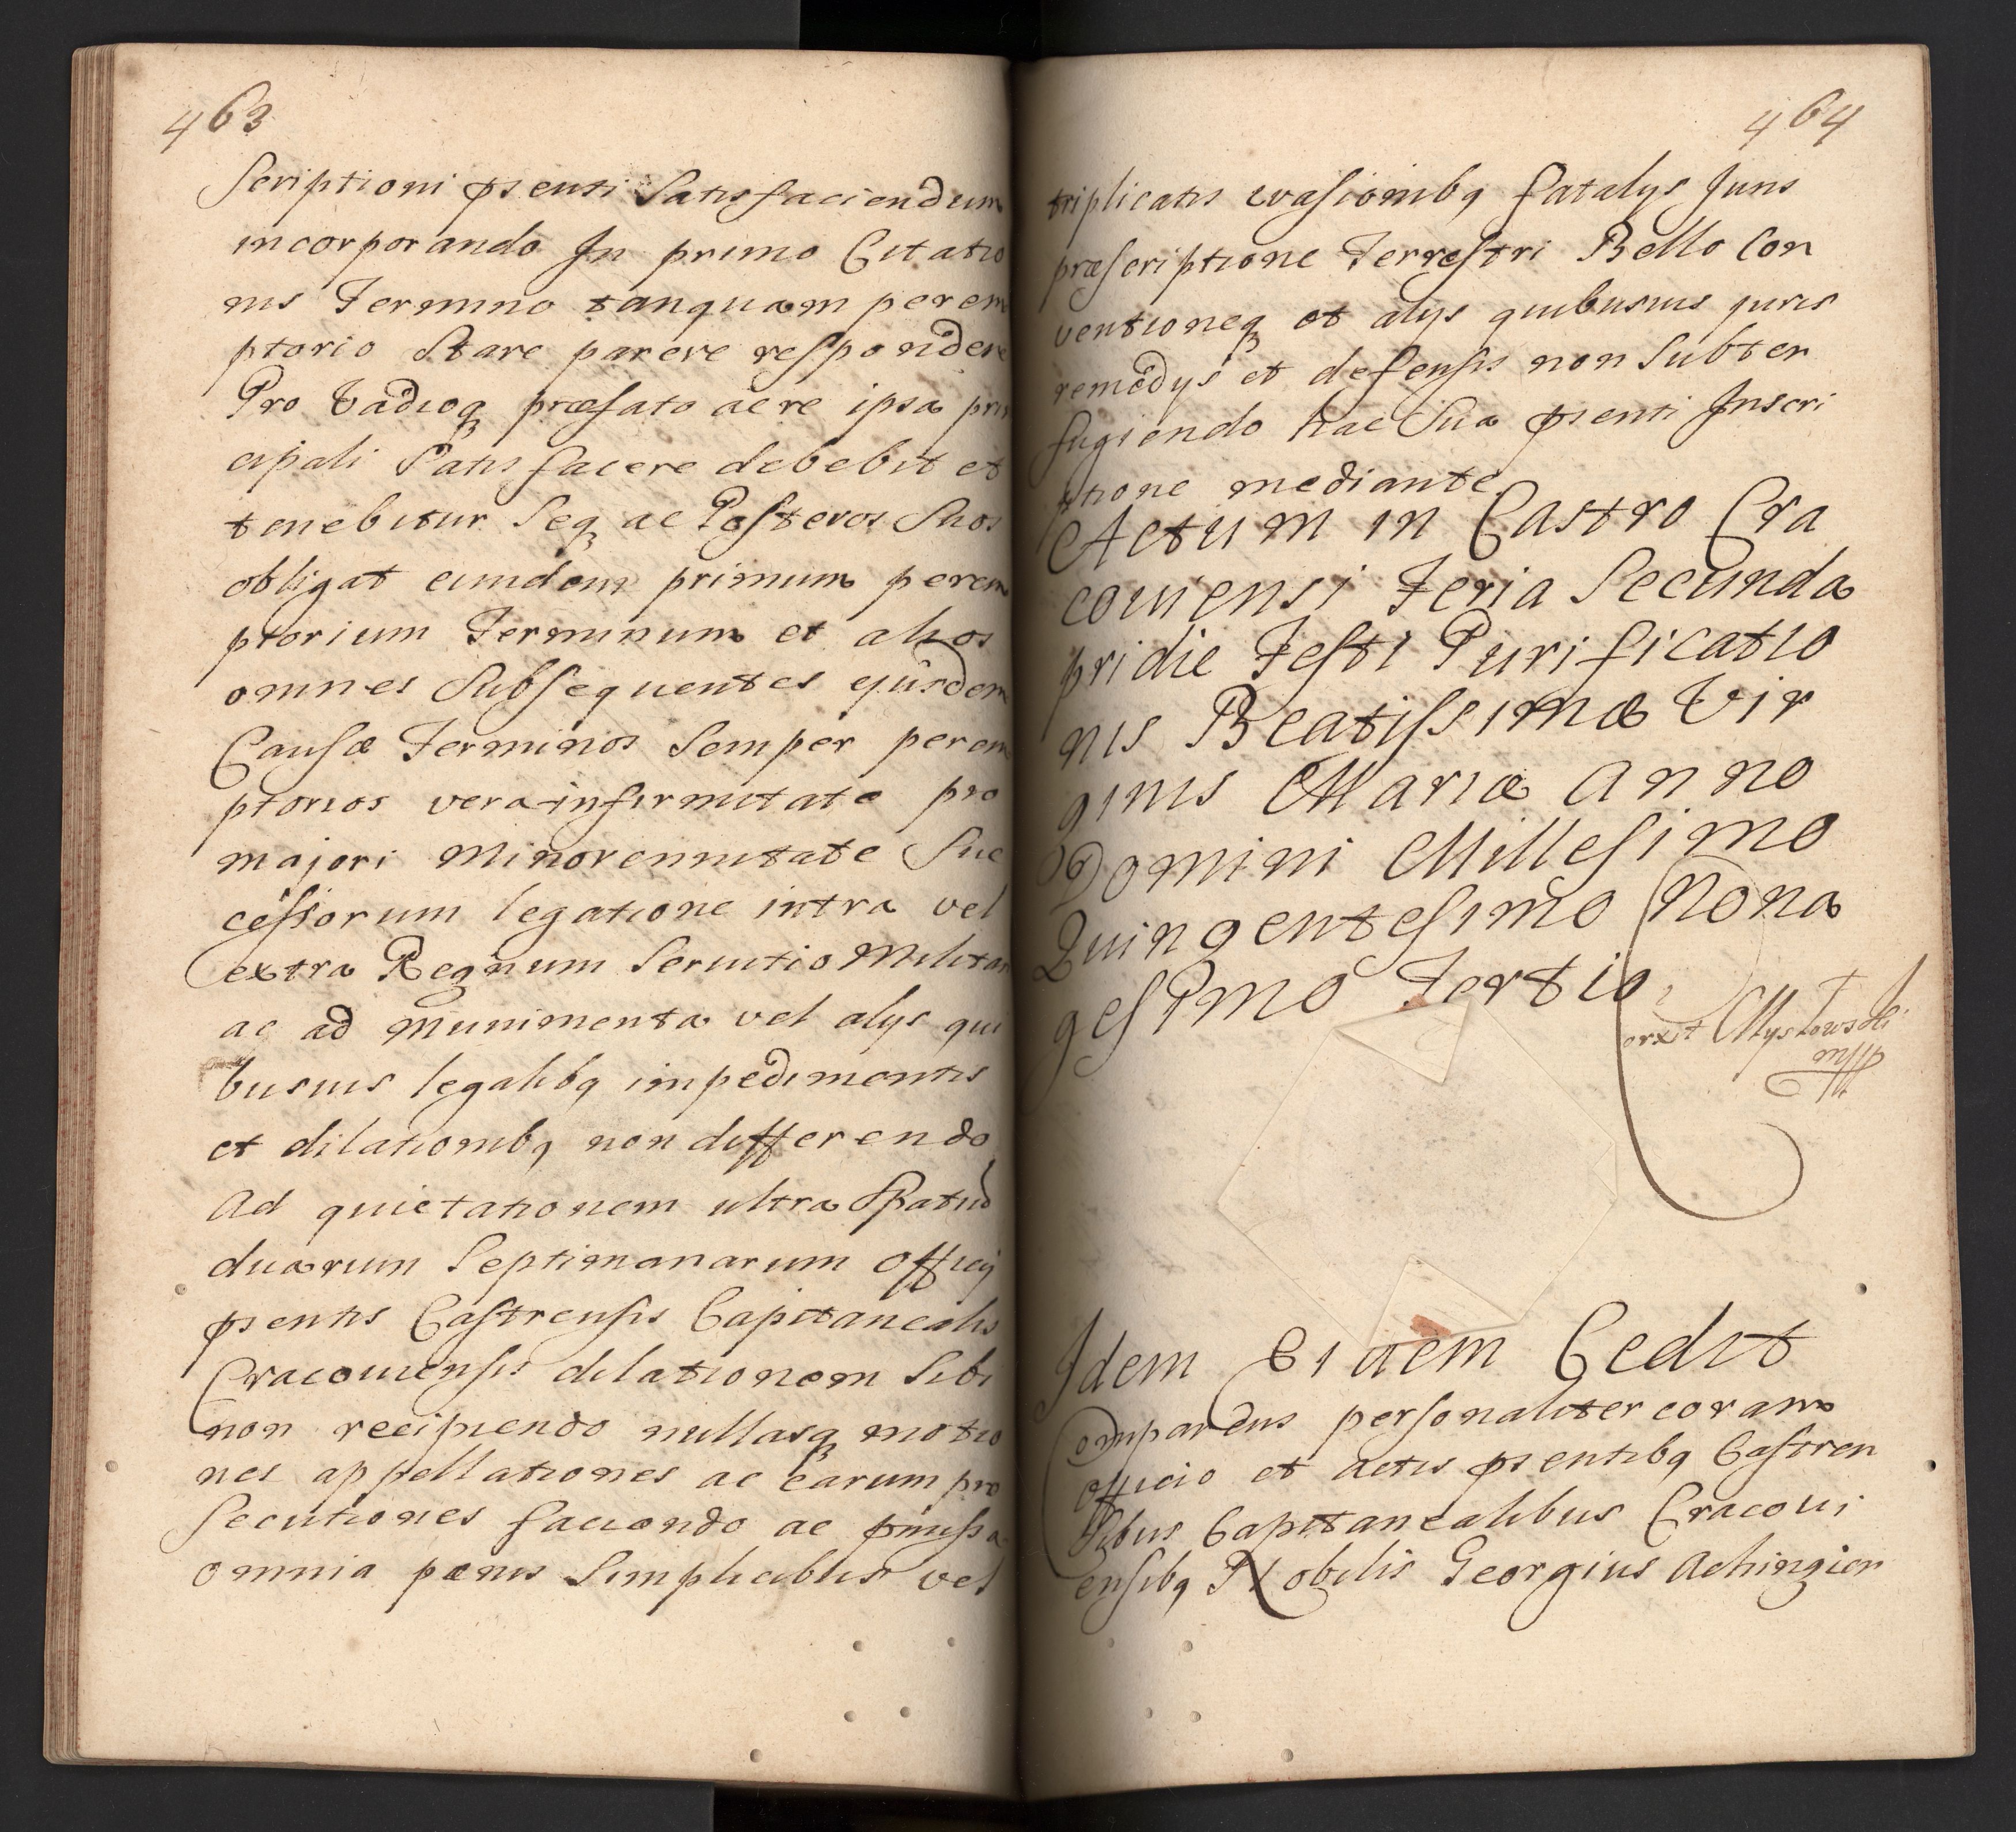 463
scriptioni pnsenti Satisfaciendum
incorporando In primo Citatio
nis Termino tanquam perem
ptorio Stare parere respondere
Pro Vadioq præfato ac re ipsa prin
cipali Satisfacere debebit et
tenebitur Seq ac Posteros Suos
obligat eundem primum perem
ptorium Terminum et alios
omnes Subsequentes ejusdem
Causæ Terminos Semper perem
ptorios vera infirmitate pro
majori Minorennitate Suc
cessorum legatione intra vel
extra Regnum Servitio Militari
ac ad Munimenta vel alys qui
busvis legalibq impedimentis
et dilationibq non differendo
Ad quietationem ultra Spatiū
duarum Septimanarum Officij
pnsentis Castrensis Capitanealis
Cracoviensis dilationem Sibi
non recipiendo nullasq motio
nes appellationes ac earum pro
secutiones faciendo ac pmissa
omnia pænis Simplicibus vel
464
triplicatis evasionibq fatalys Juris
præscriptione Terrestri Bello Con
ventioneq et alys quibusvis juris
remedys et defensis non Subter
fugiendo hac Sua pnsenti Inscri
ptione mediante
Actum in Castro Cra
coviensi Feria Secunda
pridie Festi Purificatio
nis Beatissimæ Vir
ginis Mariæ Anno
Domini Millesimo
Quingentesimo Nona
gesimo Tertio
Corxit Mysłowski
mpp
Idem Eidem Cedit
Comparens personaliter coram
Officio et Actis pnsentibq Castren
sibus Capitanealibus Cracovi
ensibq Nobilis Georgius Achingier